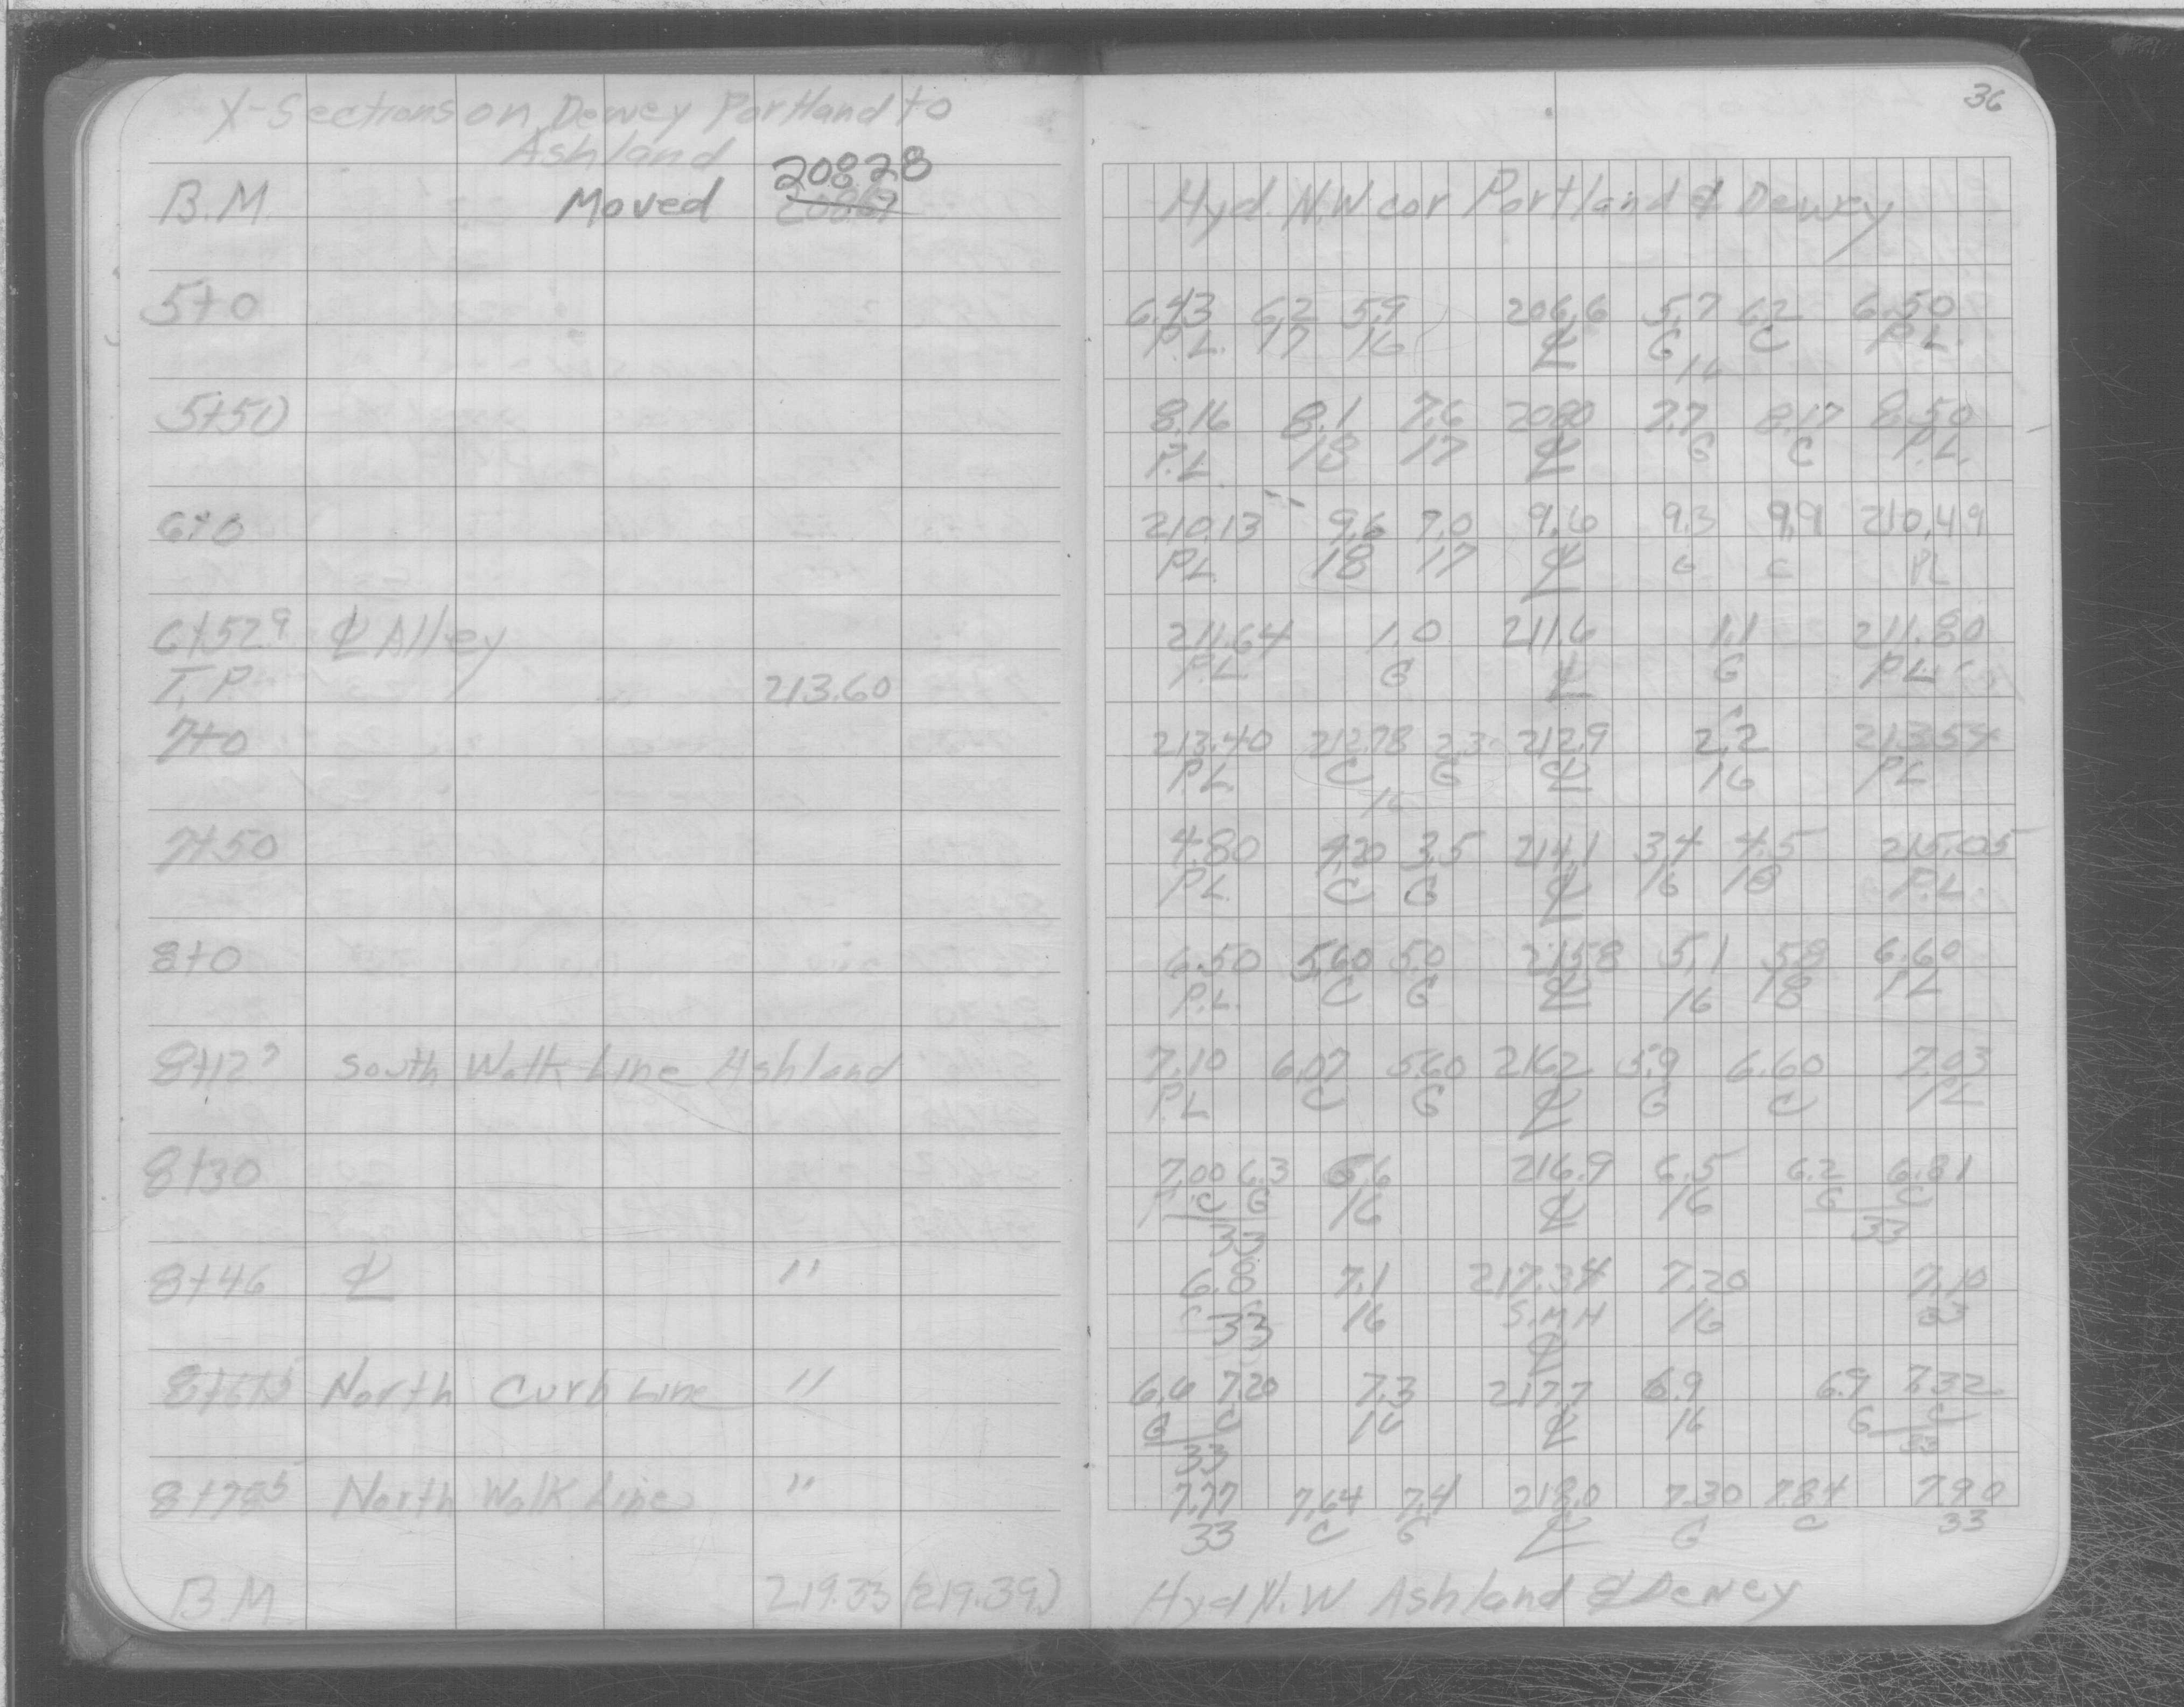 36
X-Sections on Dewey Portland to
Ashland
20828
B.M. Moved 20867 Hyd. N.W cor Portland & Dewey
5+0 6.43 6.2 5.9 206.6 5.7 6.2 6.50
P.L. 17 16 ℄ G C P.L.
16
5+50 8.16 8.1 7.6 2080 7.7 8.17 8.50
P.L. 18 17 ℄ G C P.L.
6+0 210.13 9.6 7.0 9.6 9.3 9.9 210.49
P.L. 18 17 ℄ G C PL
6+52.9 ℄ Alley 211.64 1.0 211.6 1.1 211.80
T.P. 213.60 P.L. G ℄ G P.L.
7+0 213.40 212.78 2.3 212.9 2.2 213.54
P.L. C G ℄ 16 PL
16
7+50 4.80 4.20 3.5 214.1 3.4 4.5 215.05
P.L. C G ℄ 16 18 P.L.
8+0 6.50 5.60 5.0 215.8 5.1 5.8 6.60
P.L. C G ℄ 16 18 PL
8+12 South Walk Line Ashland 7.10 6.07 5.60 216.2 5.9 6.60 7.03
P.L C G ℄ G C PL
8+30 7.00 6.3 6.6 216.9 6.5 6.2 6.81
C G 16 ℄ 16 G C
33 33
8+46 ℄ " 6.8 7.1 217.34 7.20 7.10
33 16 S.M.H 16 33
℄
North Curb Line " 6.6 7.20 7.3 217.7 6.9 6.9 7.32
G C 16 ℄ 16 G C
33 33
8+785 North Walk Line " 7.77 7.64 7.4 218.0 7.30 7.84 7.90
33 C G ℄ G C 33
B.M 219.33 (219.39) Hyd N.W Ashland & Dewey